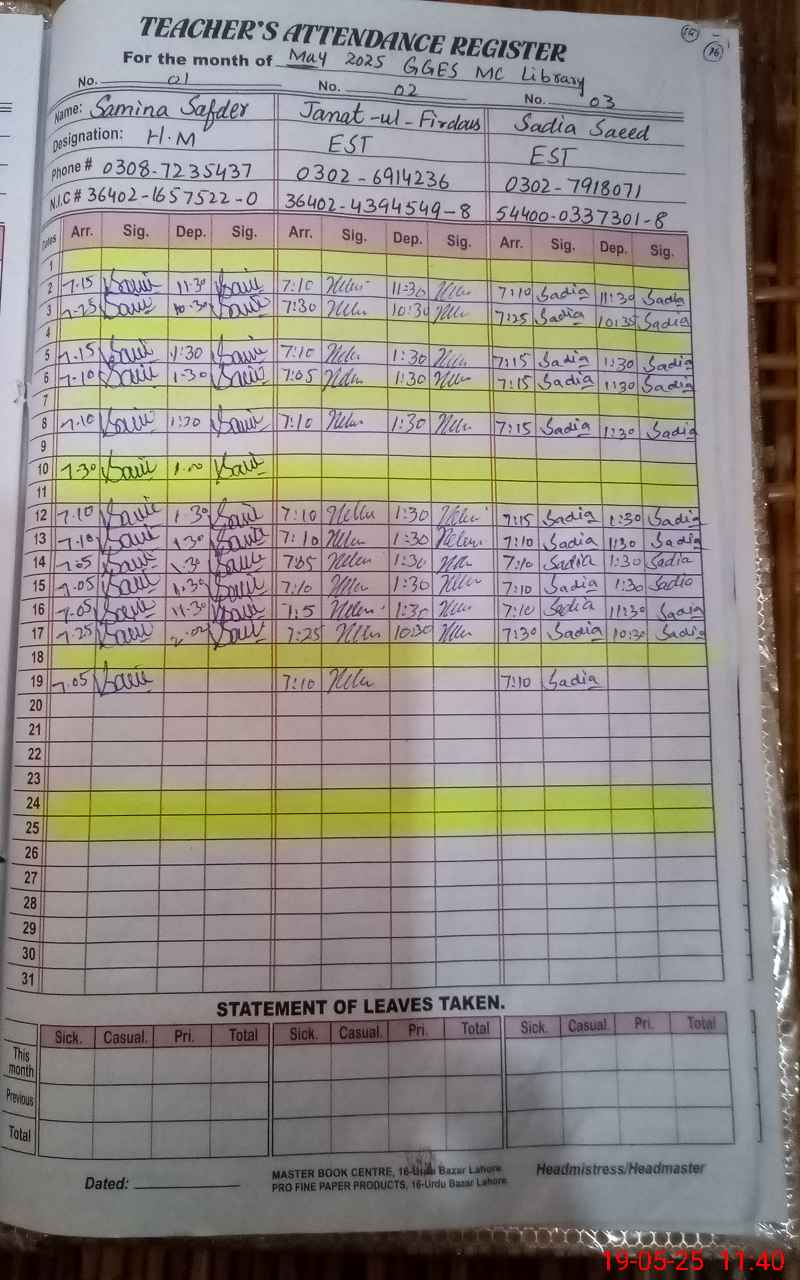 15
16
TEACHER'S ATTENDANCE REGISTER
For the month of May 2025 GGES MC Library
No. 01 No. 02 No. 03
Name: Samina Safder Janat-ul-Firdous Sadia Saeed
Designation: H.M EST EST
Phone # 0308-7235437 0302-6914236 0302-7918071
N.I.C # 36402-1657522-0 36402-4394549-8 54400-0337301-8
Dates Arr. Sig. Dep. Sig. Arr. Sig. Dep. Sig. Arr. Sig. Dep. Sig.
1
2 7.15 11.30 7:10 11:30 7:10 Sadia 11:30 Sadia
3 7.25 10.30 7:30 10:30 7:25 Sadia 10:35 Sadia
4
5 7.15 1:30 7:10 1:30 7:15 Sadia 1:30 Sadia
6 7.10 1.30 7:05 1:30 7:15 Sadia 1:30 Sadia
7
8 7.10 1:30 7:10 1:30 7:15 Sadia 1:30 Sadia
9
10 7.30 1.00
11
12 7.10 1.30 7:10 1:30 7:15 Sadia 1:30 Sadia
13 7.10 1.30 7:10 1:30 7:10 Sadia 1:30 Sadia
14 7.05 1.30 7:05 1:30 7:10 Sadia 1:30 Sadia
15 7.05 1.30 7:10 1:30 7:10 Sadia 1:30 Sadia
16 7.05 11.30 7:5 1:30 7:10 Sadia 11:30 Sadia
17 7.25 2.00 7:25 10:30 7:30 Sadia 10:30 Sadia
18
19 7.05 7:10 7:10 Sadia
20
21
22
23
24
25
26
27
28
29
30
31
STATEMENT OF LEAVES TAKEN.
Sick. Casual. Pri. Total Sick. Casual. Pri. Total Sick. Casual. Pri. Total
This month
Previous
Total
Dated: MASTER BOOK CENTRE, 16-Urdu Bazar Lahore. Headmistress/Headmaster
PRO FINE PAPER PRODUCTS, 16-Urdu Bazar Lahore.
19-05-25 11:40